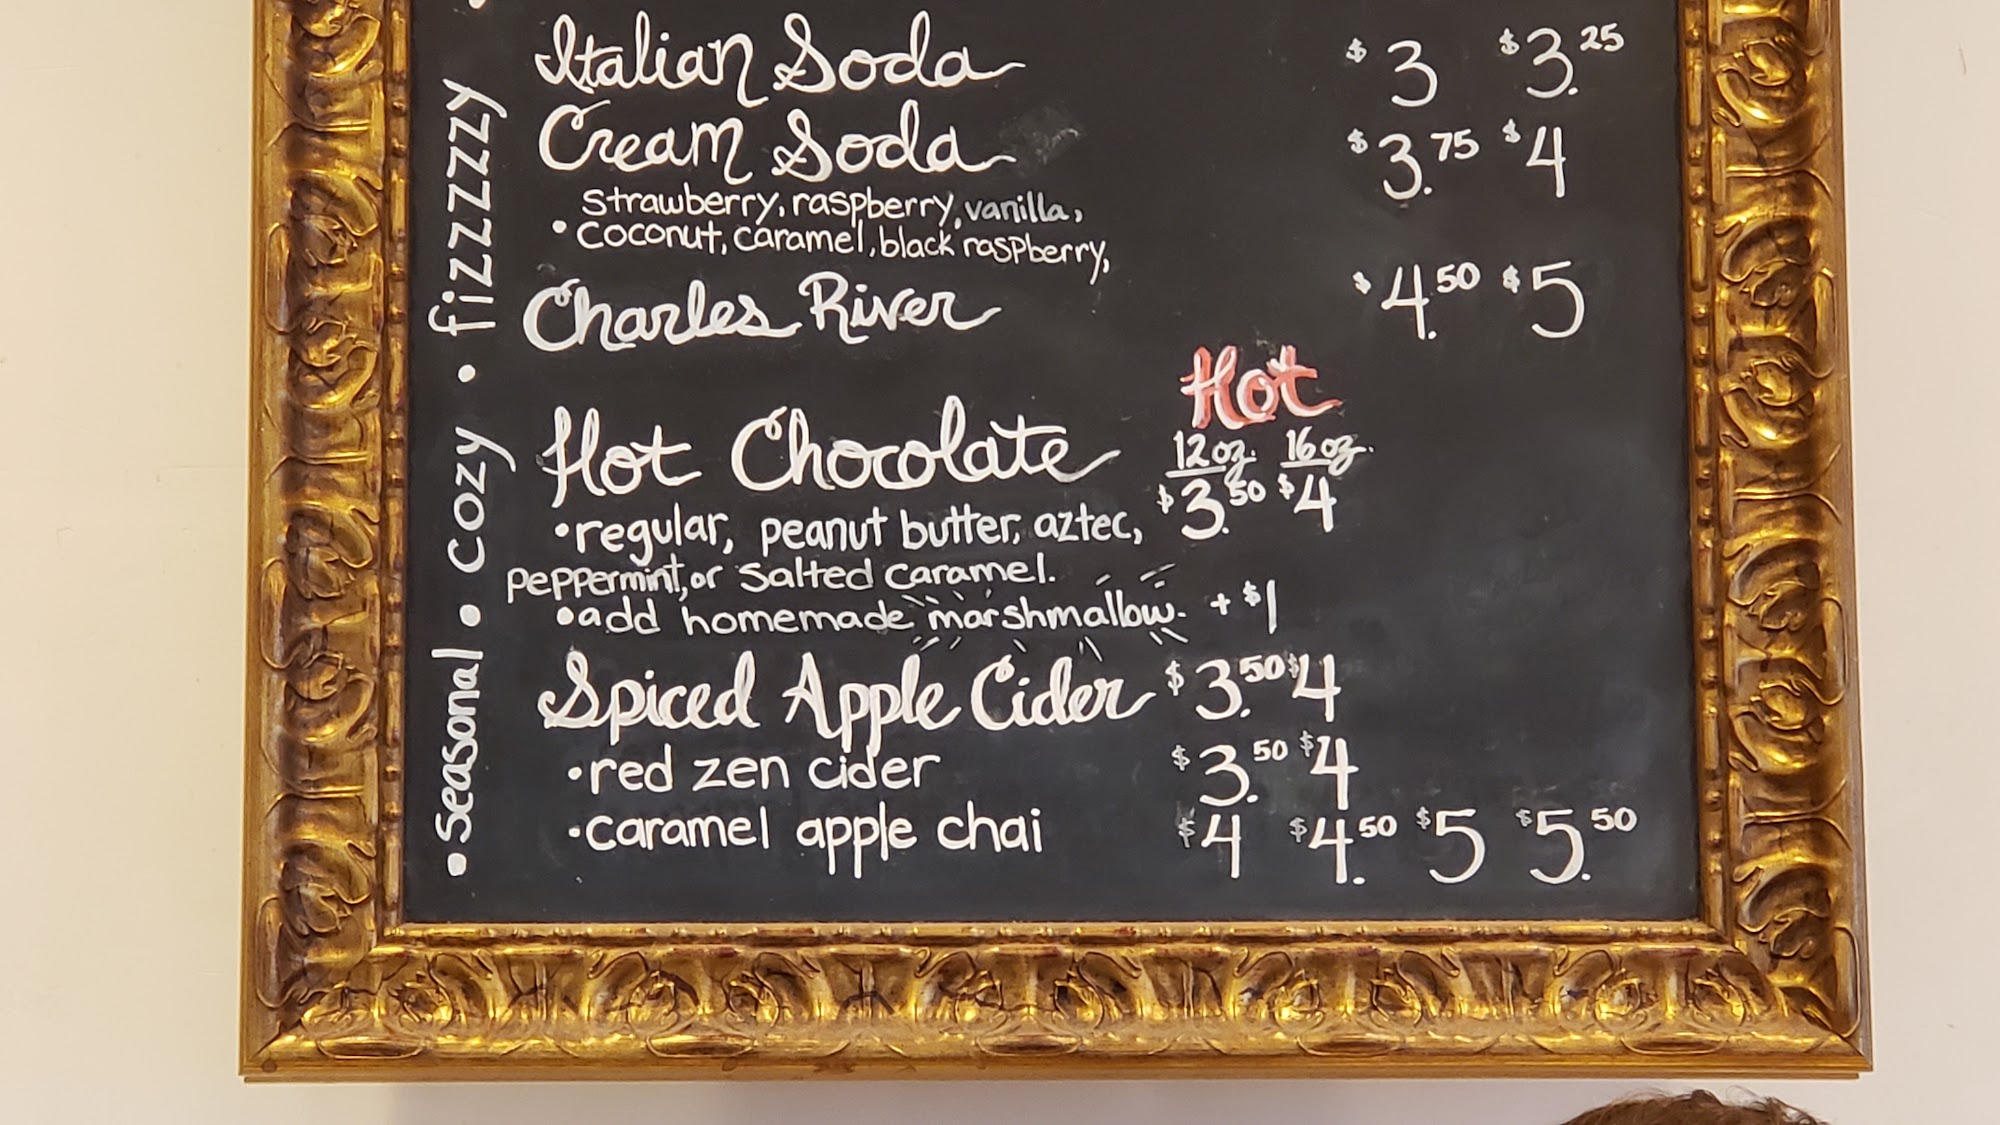 Italian Soda $3 $3.25
Cream Soda $3.75 $4
strawberry, raspberry, vanilla,
• coconut, caramel, black raspberry,
Charles River $4.50 $5
Hot
Hot Chocolate 12oz. 16oz.
$3.50 $4
• regular, peanut butter, aztec,
peppermint, or salted caramel.
• add homemade marshmallow. + $1
Spiced Apple Cider $3.50 $4
• red zen cider $3.50 $4
• caramel apple chai $4 $4.50 $5 $5.50
• Seasonal • cozy • fizzzzzy •